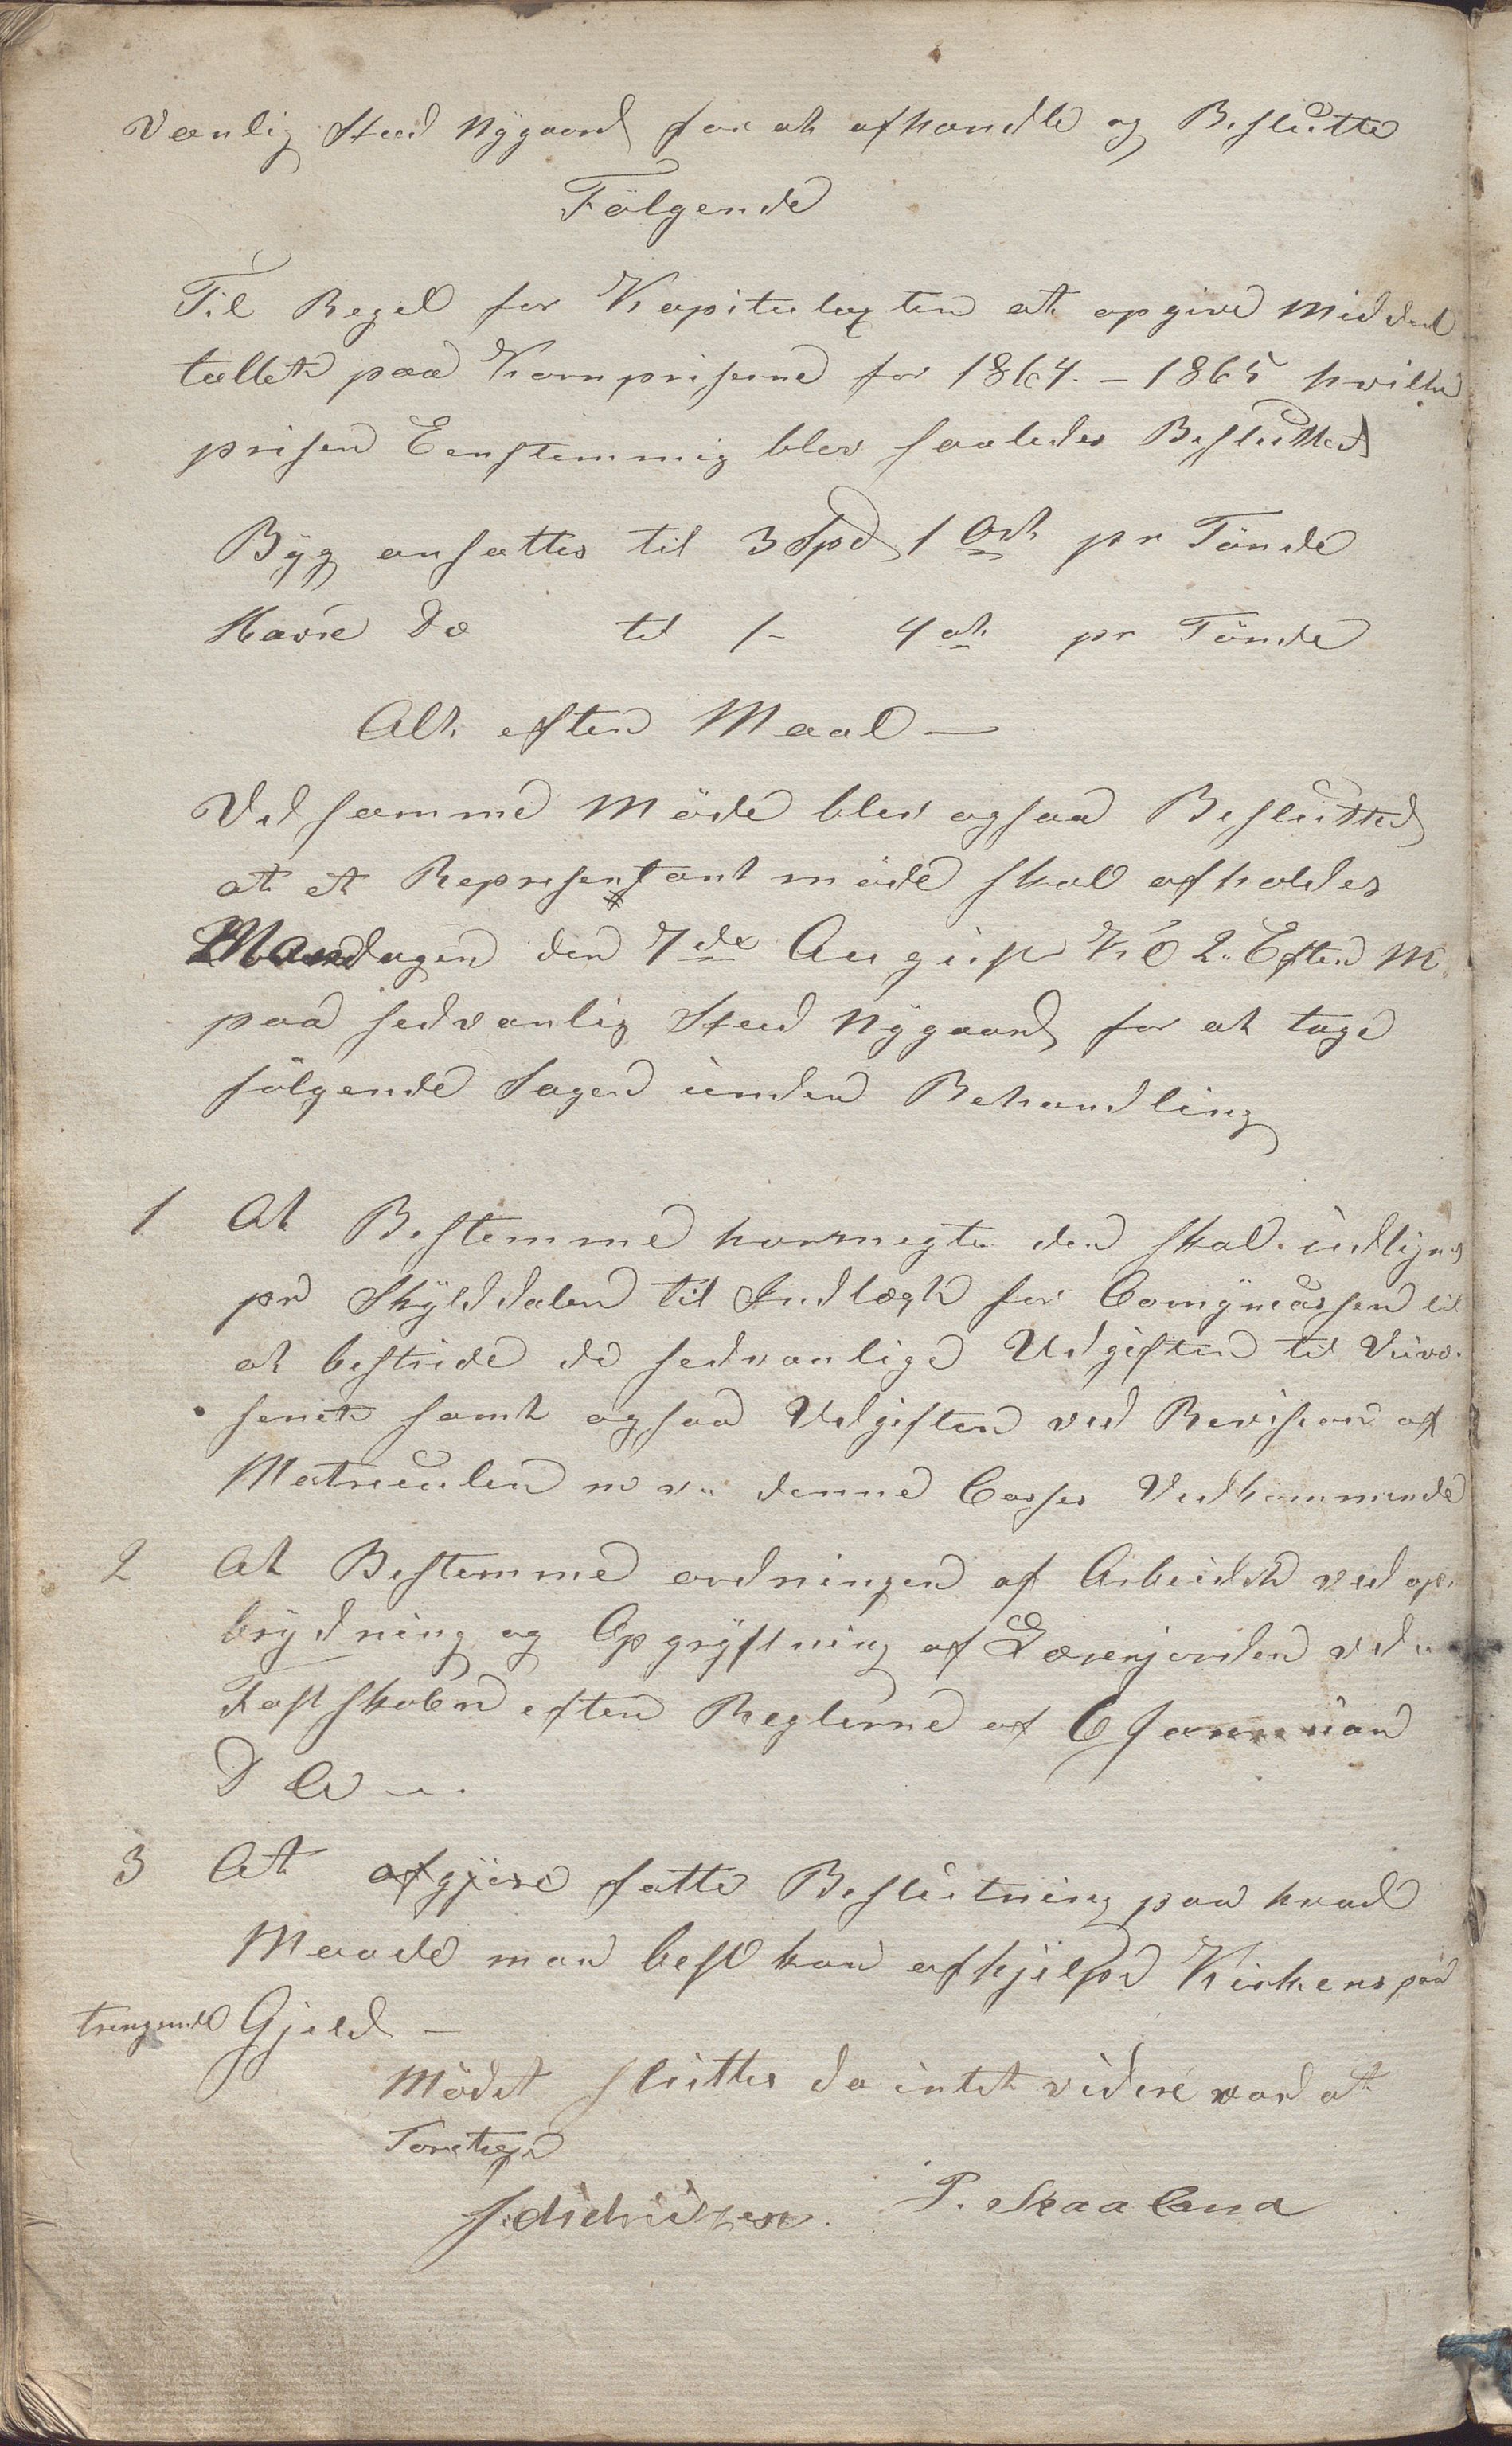 vanlig Sted Nygaard for at afhandle og Beslutte
Følgende
Til Regel for Kapitulaxten at opgive Middel
tallet paa Kornpriserne for 1864 - 1865 hvilke
prisen Eenstemmig blev saaledes Besluttet
Byg ansattes til 3 Spd 1 Ort pr Tønde
Havre do til 1 - 4 ort pr Tønde
Alt efter Maal —
Ved samme Møde blev ogsaa Besluttet
at et Representantmøde skal afholdes
Mandagen den 7de August Kl 2 Efter M
paa sedvanlig Sted Nygaard for at tage
følgende Sager under Behandling
1 At Bestemme hvormeget der skal udlignes
pr Skylddaler til Indlægt for Comynecassen til
at bestride de sedvanlige Udgifter til Veivæ
senet samt ogsaa Udgifter ved Revision af
Matriculen m v denne Casses Vedkommende
2 At Bestemme ordningen af Arbeidet ved op
brydning og Opgrøftning af Lærerjorden ved
Fastskolen efter Reglerne af 6 Januuar
D A —
3 At afgjøre fatte Beslutning paa hvad
Maade man best kan afhjelpe Kirkens paa
trengende Gjeld —
Mødet sluttes da intet videre var at
Foretage
J. Didriksen. P. Skaaland